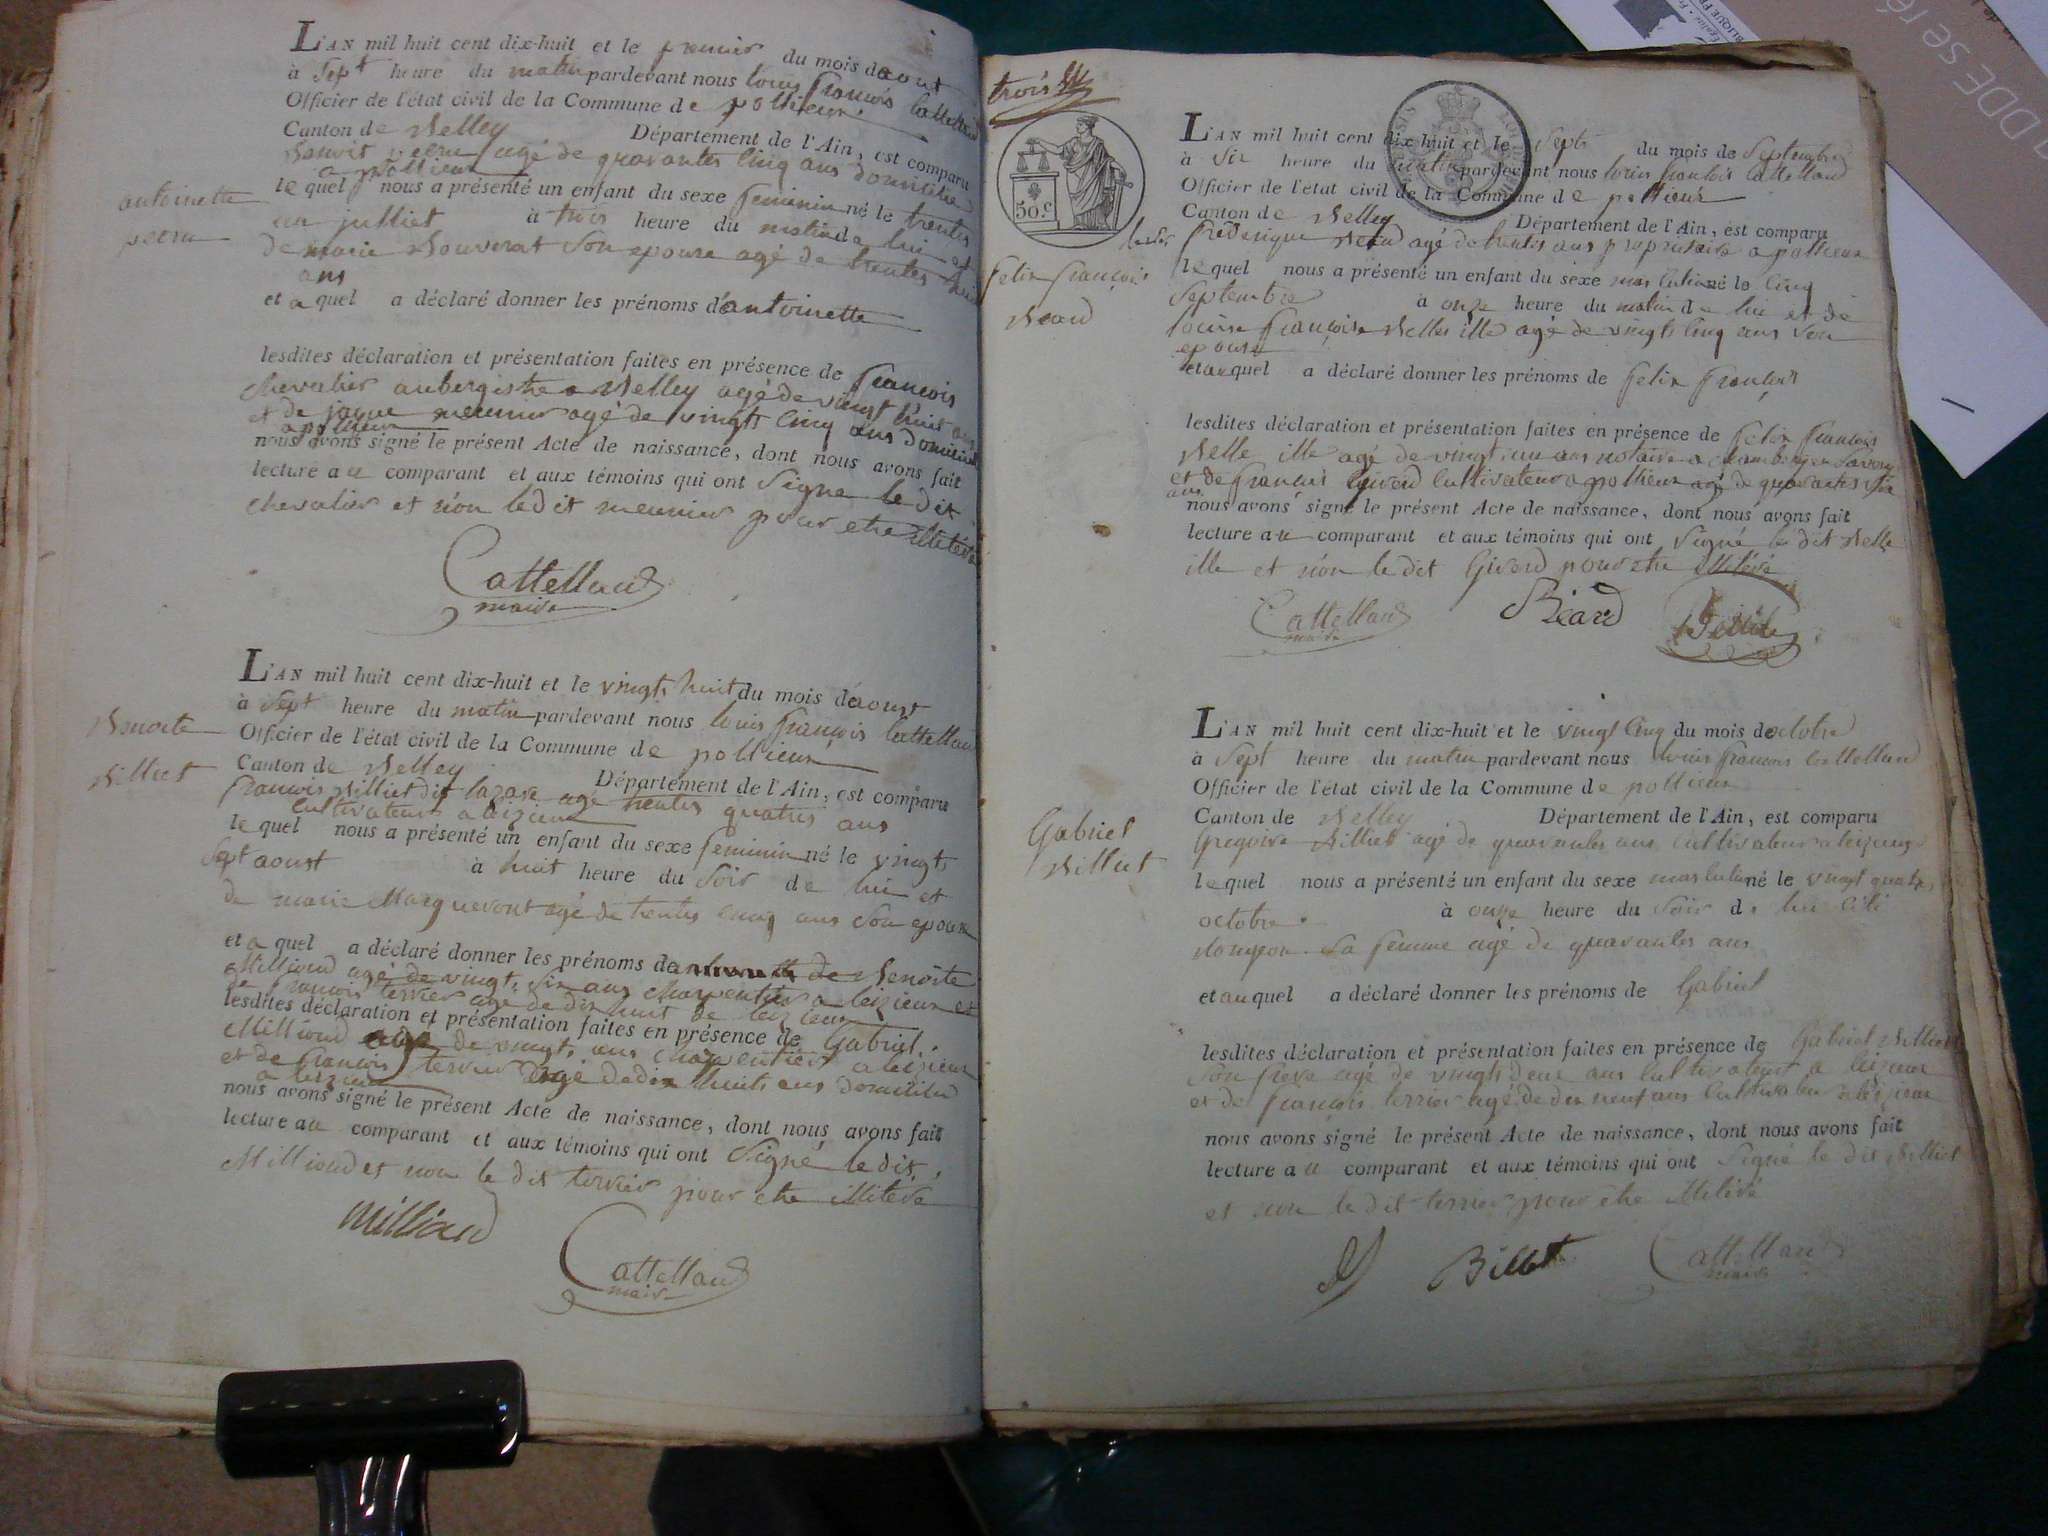 L'AN mil huit cent dix-huit et le premier du mois daout
à sept heure du matin pardevant nous louis françois Cattelland
Officier de l'état civil de la Commune de pollieux
Canton de Belley Département de l'Ain, est comparu
Benoit agé de quarantes cinq ans domicilié
a pollieux
le quel nous a présenté un enfant du sexe feminin né le trentes
un julliet à trois heure du matin de lui et
de marie son epouse agé de trentes huit
ans
et a quel a déclaré donner les prénoms d'antoinette
antoinette
lesdites déclaration et présentation faites en présence de françois
chevalier aubergiste a Belley agé de vingt huit ans
et de jaque meunier agé de vingts cinq ans domicilié
a pollieux
nous avons signé le présent Acte de naissance, dont nous avons fait
lecture au comparant et aux témoins qui ont signé le dit
chevalier et non ledit meunier pour etre illitéré
Cattelland
maire
L'AN mil huit cent dix-huit et le vingts huit du mois d'aoust
à sept heure du matin pardevant nous louis françois Cattelland
Officier de l'état civil de la Commune de pollieux
Canton de Belley Département de l'Ain, est comparu
françois Billiet dit lazare agé trentes quatres ans
cultivateur a leizieux
le quel nous a présenté un enfant du sexe feminin né le vingt
sept aoust à huit heure du soir de lui et
de marie Marguevont agé de trentes cinq ans son epouse
Benoite
Billiet
et a quel a déclaré donner les prénoms de de Benoite
Milliond agé de vingt six ans charpentier a leizieux et
de françois terrier agé de dix huit de leizieux
lesdites déclaration et présentation faites en présence de Gabriel
Milliond agé de vingts ans charpentier a leizieux
et de françois terrier agé de dix huits ans domicilié
a leizieux
nous avons signé le présent Acte de naissance, dont nous avons fait
lecture au comparant et aux témoins qui ont signé le dit
Milliond et non le dit terrier pour etre illitéré
Milliond
Cattelland
maire
trois
50. c
felix françois
Beard
L'AN mil huit cent dix-huit et le sept du mois de septembre
à six heure du matin pardevant nous louis françois Cattelland
Officier de l'état civil de la Commune de pollieux
Canton de Belley Département de l'Ain, est comparu
frederique Beard agé de trentes ans propriétaire a pollieux
le quel nous a présenté un enfant du sexe masculin né le cinq
septembre à onze heure du matin de lui et de
louise françoise Belle ille agé de vingts cinq ans son
epouse
et auquel a déclaré donner les prénoms de felix françois
lesdites déclaration et présentation faites en présence de felix françois
Belle ille agé de vingt un ans notaire a chambery en Savoye
et de françois Giverd cultivateur a pollieux agé de quarantes six
ans
nous avons signé le présent Acte de naissance, dont nous avons fait
lecture au comparant et aux témoins qui ont signé le dit Belle
ille et non le dit Giverd pour etre illitéré
Cattelland
maire
Béard
L'AN mil huit cent dix-huit et le vingt cinq du mois doctobre
à sept heure du matin pardevant nous louis françois Cattelland
Officier de l'état civil de la Commune de pollieux
Canton de Belley Département de l'Ain, est comparu
Gregoire Billiet agé de quarantes ans cultivateur a leizieux
Gabriel
Billiet
le quel nous a présenté un enfant du sexe masculin né le vingt quatre
octobre à onze heure du soir de lui
sa femme agé de quarantes ans
et auquel a déclaré donner les prénoms de Gabriel
lesdites déclaration et présentation faites en présence de Gabriel Billiet
son frere agé de vingts deux ans cultivateur a leizieux
et de françois terrier agé de dix neuf ans cultivateur a leizieux
nous avons signé le présent Acte de naissance, dont nous avons fait
lecture au comparant et aux témoins qui ont signé le dit Billiet
et non le dit terrier pour etre illitéré
Billet
Cattelland
maire